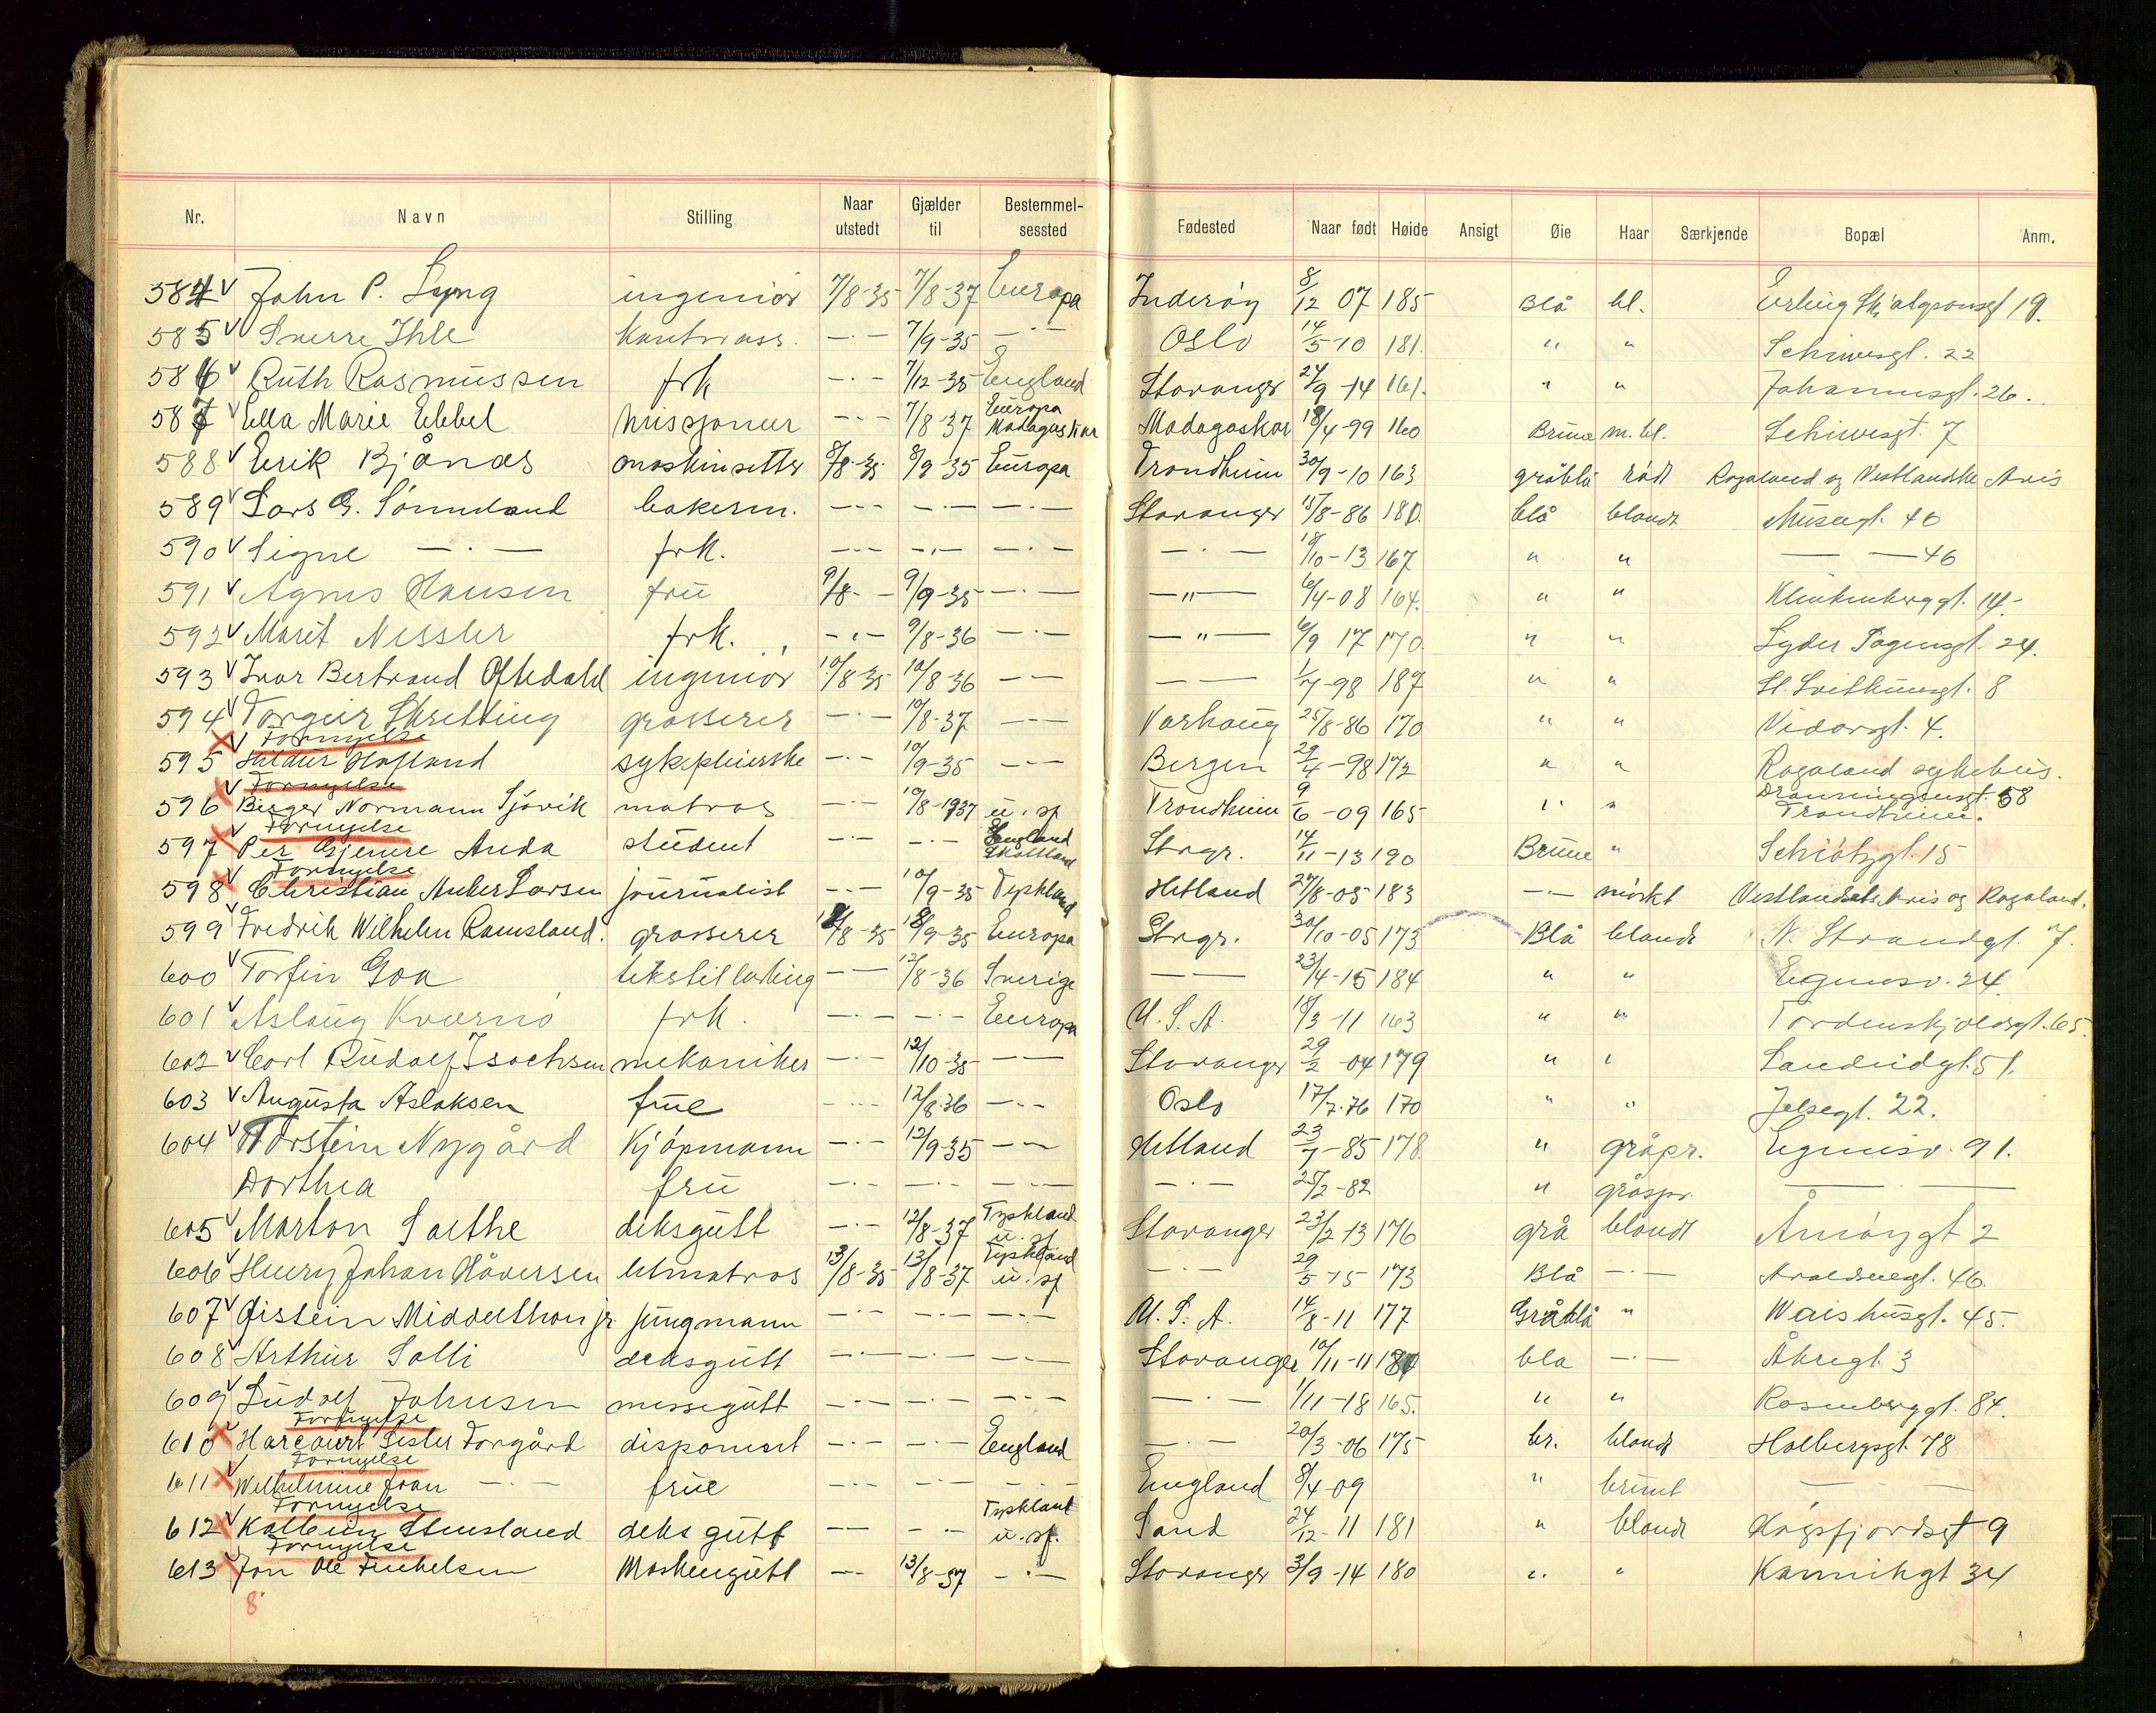 Nr. Navn Stilling Naar utstedt Gjælder til Bestemmelsessted Fødested Naar født Høide Ansigt Øie Haar Særkjende Bopæl Anm.
584 v John P. Lyng ingeniør 7/8-35 7/8-37 Europa Inderøy 8/12 07 185 Blå bl. Erling Skjalgsonsgt 19.
585 v Sverre Ihle Kontorass. -·- 7/9-35 -·- Oslo 14/5-10 181. " " Schiwesgt. 22
586 v Ruth Rasmussen frk -·- 7/12-35 England Stavanger 24/9-14 161. " " Johannesgt. 26.
587 v Ella Marie Ebbel misjonær -·- 7/8-37 Europa Madagaskar Madagaskar 18/4-99 160 Brune m.bl. Schiwesgt. 7
588 v Erik Bjånes maskinsetter 8/8-35 8/9-35 Europa Trondheim 30/9-10 163 gråblå rødt Rogaland og Vestlandske Avis
589 v Lars G. Sømmeland bakerm. -·- -·- -·- Stavanger 15/8-86 180. blå blondt Muségt. 46
590 v Signe -·- frk. -·- -·- -·- -·- 18/10-13 167 " " — — 46
591 v Agnes Hansen frü 9/8- - 9/9-35 -·- -"- 6/4-08 164. " " Klinkenberggt. 14-
592 v Marit Nessler frk. -·- 9/8-36 -·- -"- 6/9 17 170. " " Lyder Sagensgt. 24.
593 v Ivar Bertrand Oftedahl ingeniør 10/8-35 10/8-36 - - - - 1/7-98 187 " " St. Svithunsgt. 8
594 v Torgeir Skretting grosserer -·- 10/8-37 -·- Varhaug 25/8-86 170 " " Vidarsgt. 4.
v Fornyelse
595 Hildur Hofland sykepleierske -·- 10/9-35 -·- Bergen 29/4-98 172 " " Rogaland sykehus.
v Fornyelse
596 Birger Normann Sjøvik matros -·- 10/8-1937 u. sj Trondheim 9/6-09 165 " " Dronningensgt. 58 Trondheim.
v Fornyelse
597 Per Gjemre Anda student -·- -·- England Skottland Stvgr. 14/11-13 190 Brune " Schiøtzgt. 15
v Fornyelse
598 Christian Anker Larsen journalist -·- 10/9-35 Tyskland Hetland 27/8-05 183 -·- mørkt Vestlandske Avis og Rogaland.
599 v Fredrik Wilhelm Ramsland. grosserer 12/8-35 12/9-35 Europa Stvgr. 30/10-05 173 Blå blondt N. Strandgt. 7.
600 v Torfin Goa tekstillærling - - 12/8-36 Sverige - - 23/4-15 184 " " Eiganesv. 24.
601 v Aslaug Kvernø frk. -·- -·- Europa U.S.A. 18/3-11 163 " " Tordenskjoldsgt. 65.
602 v Carl Rudolf Isachsen mekaniker -·- 12/10-35 - - Stavanger 29/2-04 179 " " Sandeidgt. 51.
603 v Augusta Aslaksen frue -·- 12/8.36 -·- Oslo 17/7.76 170 " " Jelsegt. 22.
604 v Torstein Nygård Kjøpmann -·- 12/9-35 -·- Hetland 23/7-85 178. " gråspr. Eiganesv. 91.
Dorthea frü -·- -·- -·- -·- 25/2-82 " gråspr. — —
605 v Morton Sælthe deksgutt -·- 12/8-37 Tyskland u. sj Stavanger 23/2-13 176 grå blondt Åmøygt 2
606 v Henry Johan Håversen letmatros 13/8-35 13/8-37 Tyskland u. sj -·- 29/5-15 173 Blå -·- Avaldsnesgt. 46.
607 v Øistein Middelthon jr. jungmann -·- -·- -·- U.S.A. 14/8-11 177 Gråblå " Waishusgt. 45.
608 v Arthur Salli deksgutt -·- -·- -·- Stavanger 10/11-11 180 blå -·- Åkregt. 3
609 v Ludolf Johnsen messegutt -·- -·- -·- -·- 1/11-18 165. " " Rosenberggt. 84.
v Fornyelse
610 Harcourt Lester Torgård disponent -·- -·- England -·- 20/3-06 175 br. blondt Holbergsgt. 78
v Fornyelse
611 Wilhelmine Joan -·- frue -·- -·- -·- England 8/4-09 " brunt — —
v Fornyelse
612 Kolbein Stensland deks gutt - - -·- Tyskland u. sj. Sand 24/12-11 181 " blondt Høgsfjordsgt 9
v Fornyelse
613 Jon Ole Finkelsen Maskingutt -·- 13/8-37 -·- Stavanger 3/9-14 180 " " Kannikgt 34
8